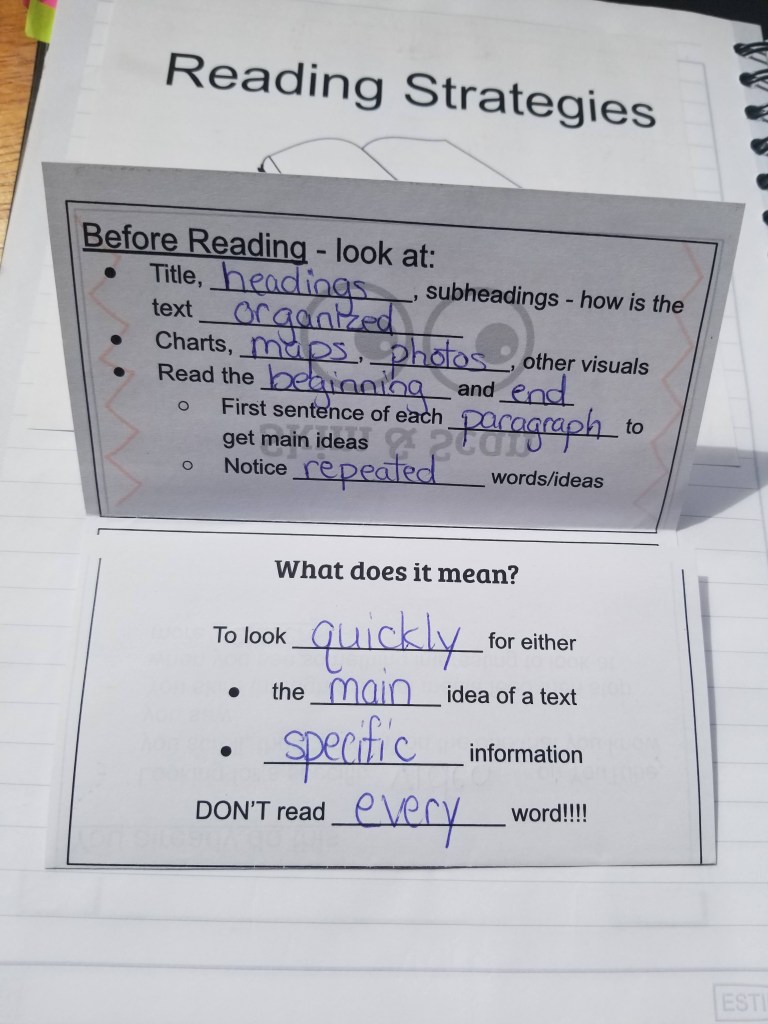 Reading Strategies
Before Reading - look at:
• Title, headings, subheadings - how is the
text organized
• Charts, maps, photos, other visuals
• Read the beginning and end
○ First sentence of each paragraph to
get main ideas
○ Notice repeated words/ideas
Skim & Scan
What does it mean?
To look quickly for either
• the main idea of a text
• specific information
DON'T read every word!!!!
ESTI